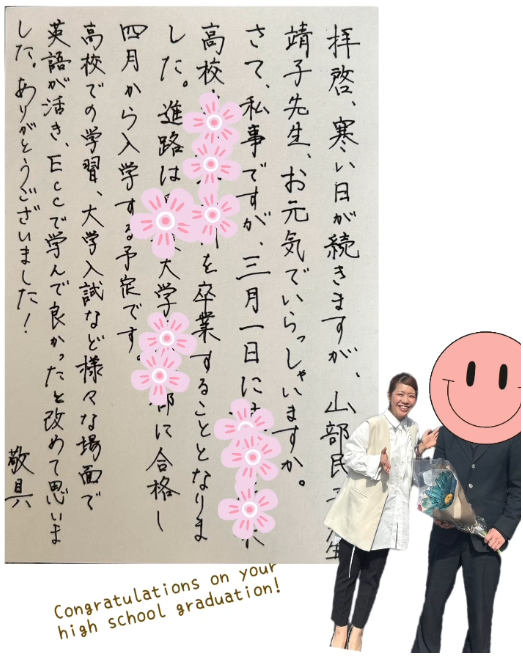 拝啓、寒い日が続きますが、山部民子先生
靖子先生、お元気でいらっしゃいますか。
さて、私事ですが、三月一日に
高校 を卒業することとなりま
した。進路は 大学 部に合格し
四月から入学する予定です。
高校での学習、大学入試など様々な場面で
英語が活き、Eccで学んで良かったと改めて思いま
した。ありがとうございました！
敬具
Congratulations on your
high school graduation!